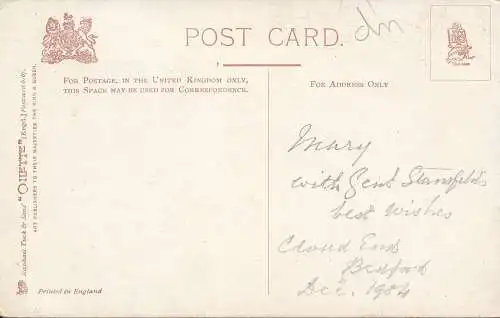 POST CARD.
FOR POSTAGE, IN THE UNITED KINGDOM ONLY,
THIS SPACE MAY BE USED FOR CORRESPONDENCE.
FOR ADDRESS ONLY
Raphael Tuck & Sons' "OILETTE" [Regd.] Postcard
ART PUBLISHERS TO THEIR MAJESTIES THE KING & QUEEN.
Printed in England
Mary
with Stansfield's
best wishes
Bedford
Dec. 1904